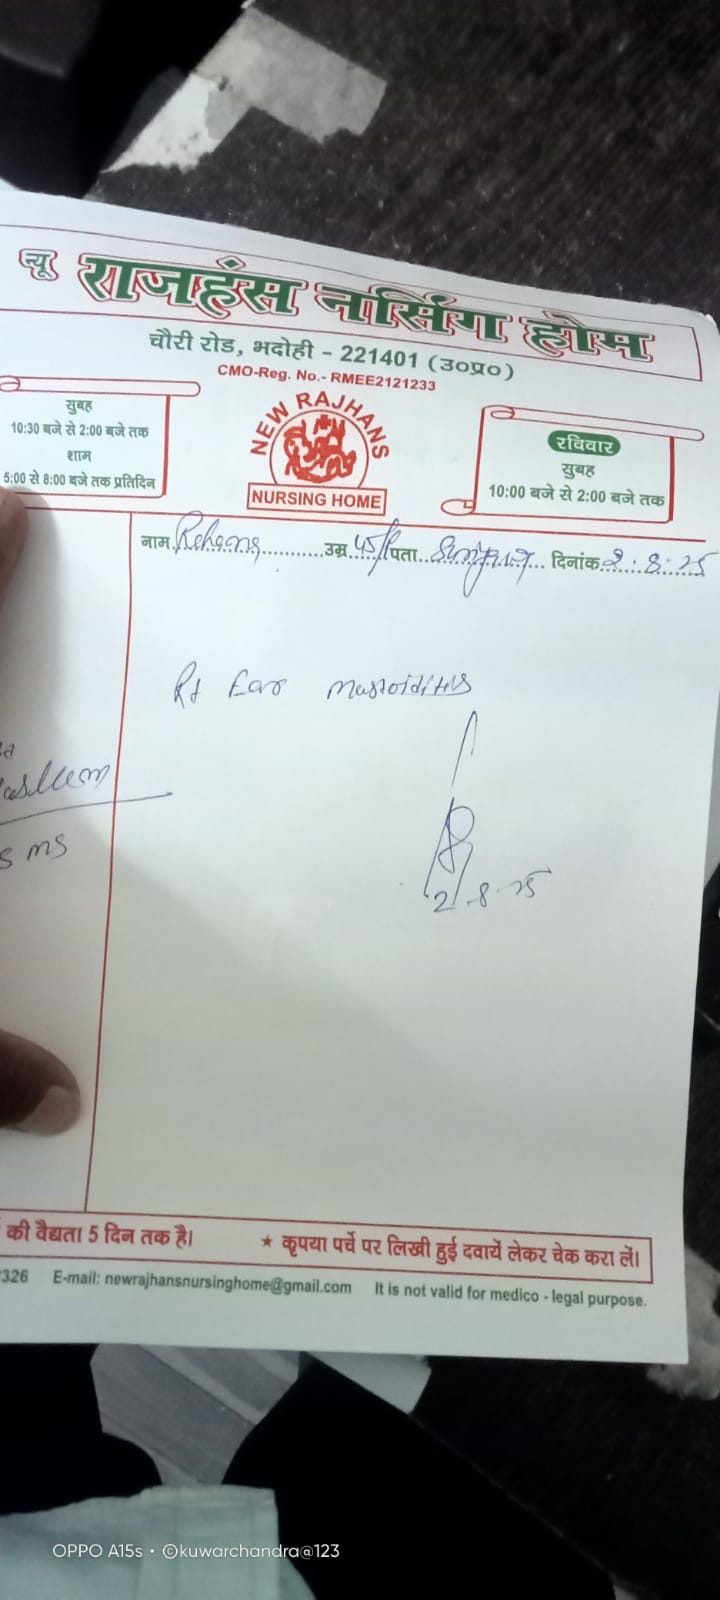 न्यू राजहंस नर्सिंग होम
चौरी रोड, भदोही - 221401 (उ०प्र०)
CMO-Reg. No.- RMEE2121233
सुबह
10:30 बजे से 2:00 बजे तक
शाम
5:00 से 8:00 बजे तक प्रतिदिन
NEW RAJHANS
NURSING HOME
रविवार
सुबह
10:00 बजे से 2:00 बजे तक
नाम उम्र 45/F पता दिनांक 2.8.25
Rt Ear mastoiditis
2.8.25
MS
की वैद्यता 5 दिन तक है।
★ कृपया पर्चे पर लिखी हुई दवायें लेकर चेक करा लें।
326 E-mail: newrajhansnursinghome@gmail.com It is not valid for medico - legal purpose.
OPPO A15s • ©kuwarchandra@123